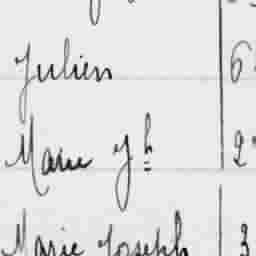 Julien 6
Marie Jh 2
Marie Joseph 3